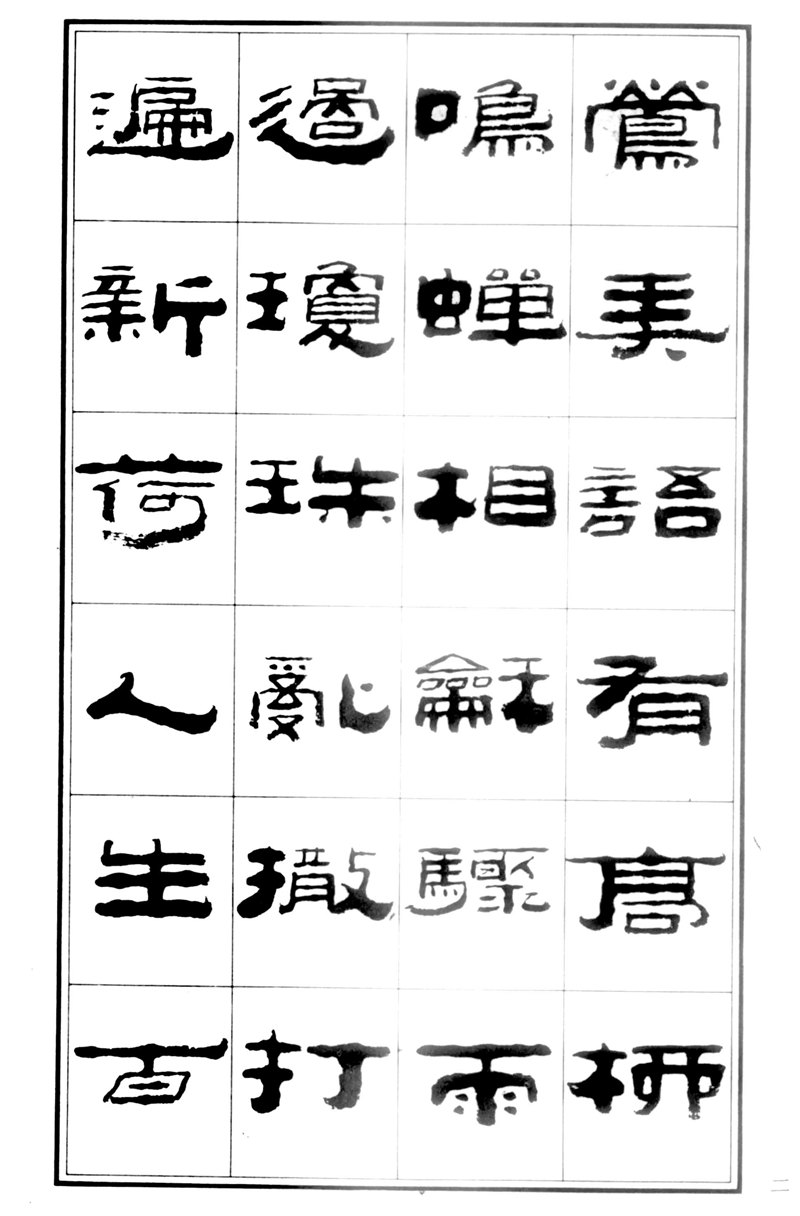 鶯弄語有高桺
鳴蟬相龢驟雨
過瓊珠亂撒打
遍新荷人生百
二